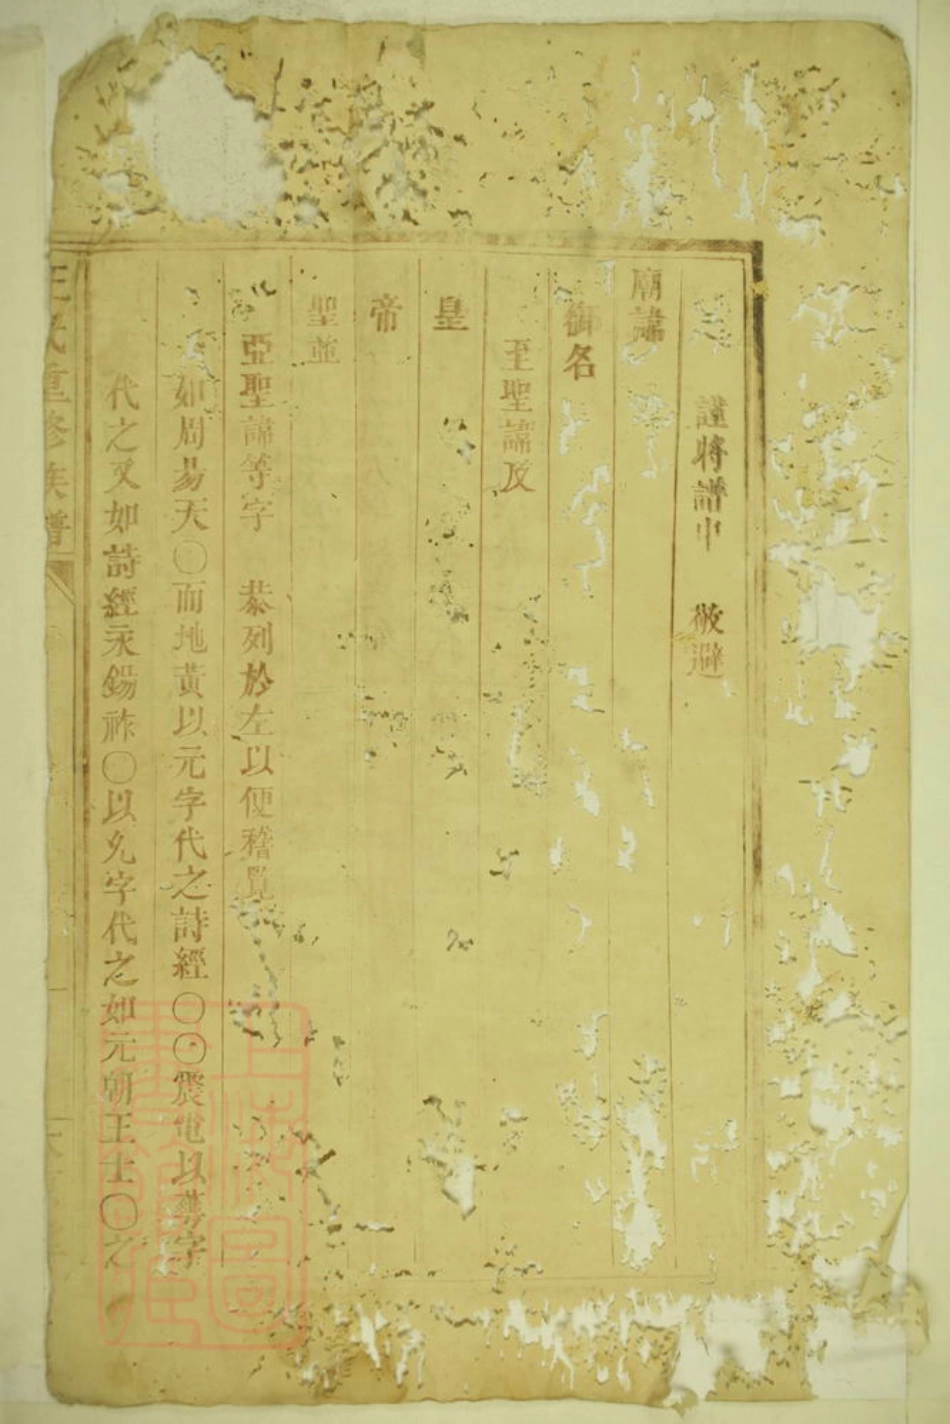 謹將譜中 敬避
廟諱
御名
至聖諱及
皇
帝
聖並
亞聖諱等字 恭列於左以便稽覽
如周易天〇而地黃以元字代之詩經〇〇震電以燁字
代之又如詩經永錫祚〇以允字代之如元朝王士〇之
王氏重修族譜